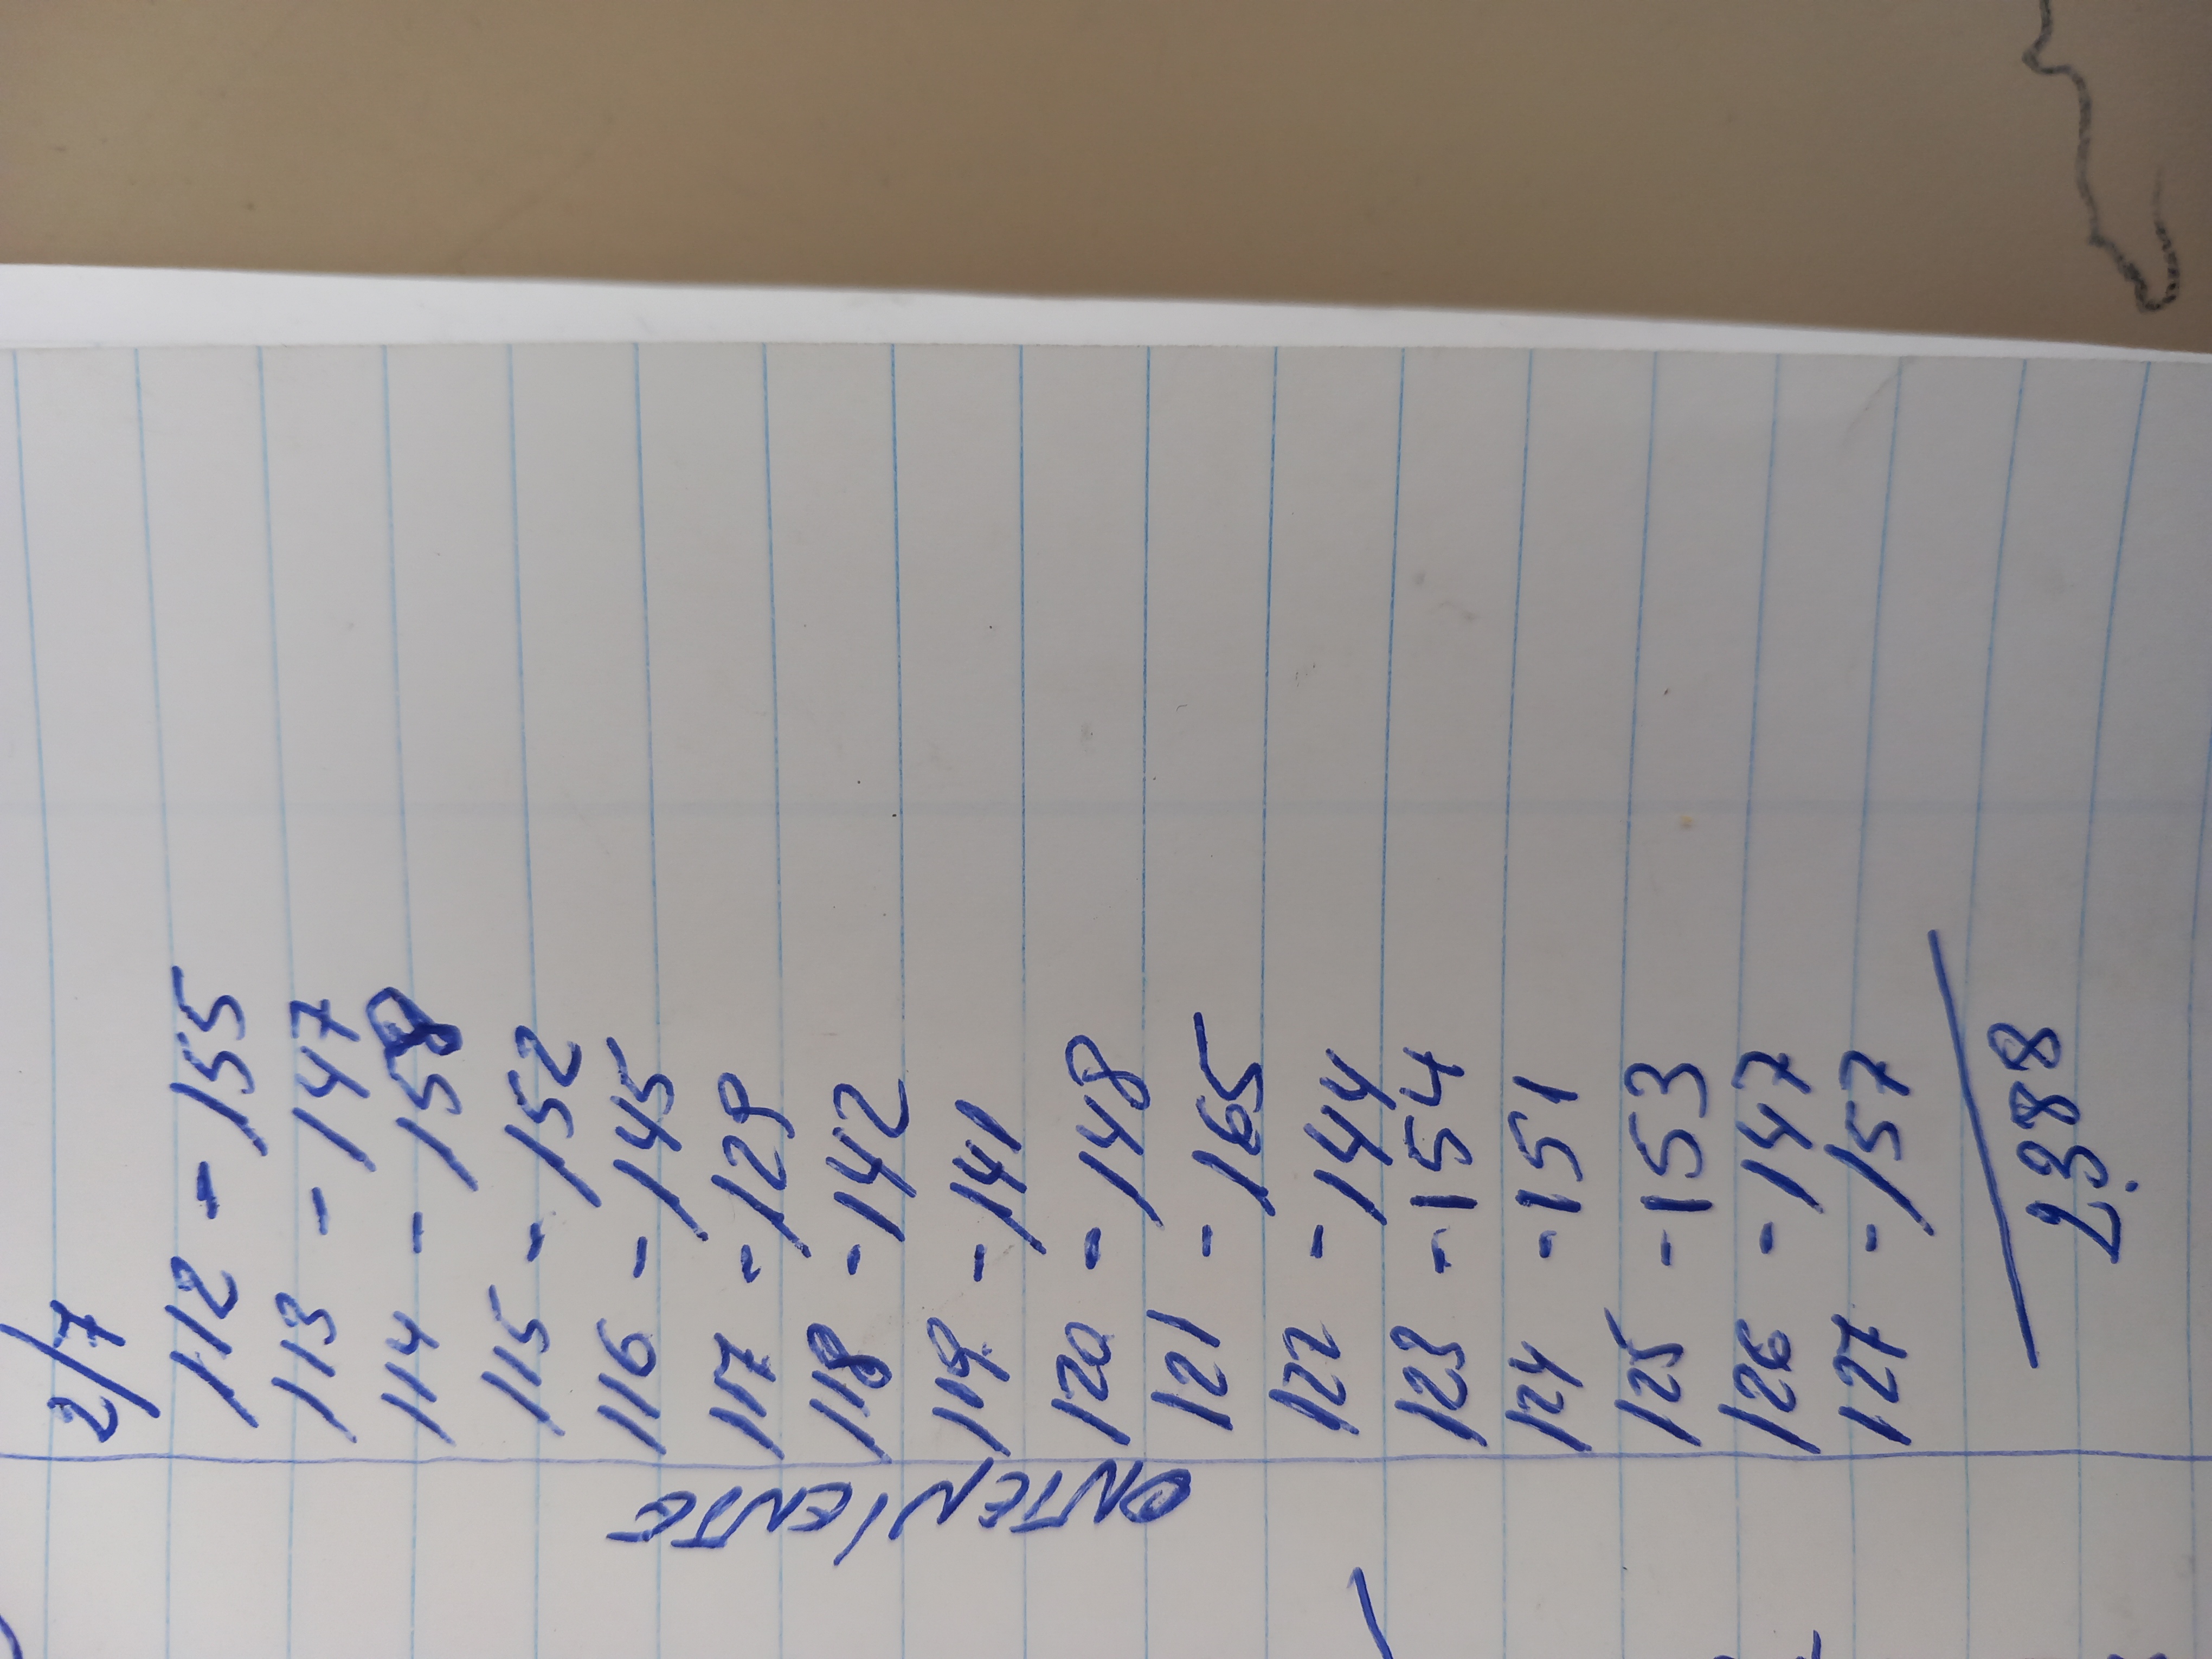 2/7
112 - 155
113 - 147
114 - 158
115 - 152
116 - 145
117 - 129
118 - 142
119 - 141
120 - 148
121 - 165
122 - 144
123 - 154
124 - 151
125 - 153
126 - 147
127 - 157
2.388
ONTENIENTE